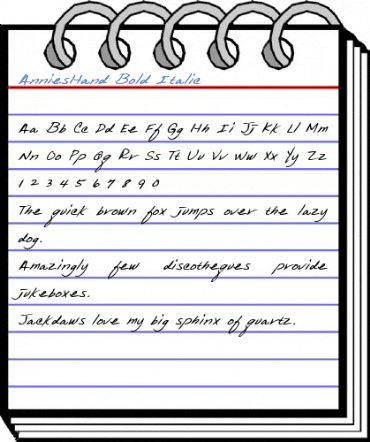 AnniesHand Bold Italic
Aa Bb Cc Dd Ee Ff Gg Hh Ii Jj Kk Ll Mm
Nn Oo Pp Qq Rr Ss Tt Uu Vv Ww Xx Yy Zz
1 2 3 4 5 6 7 8 9 0
The quick brown fox jumps over the lazy
dog.
Amazingly few discotheques provide
jukeboxes.
Jackdaws love my big sphinx of quartz.